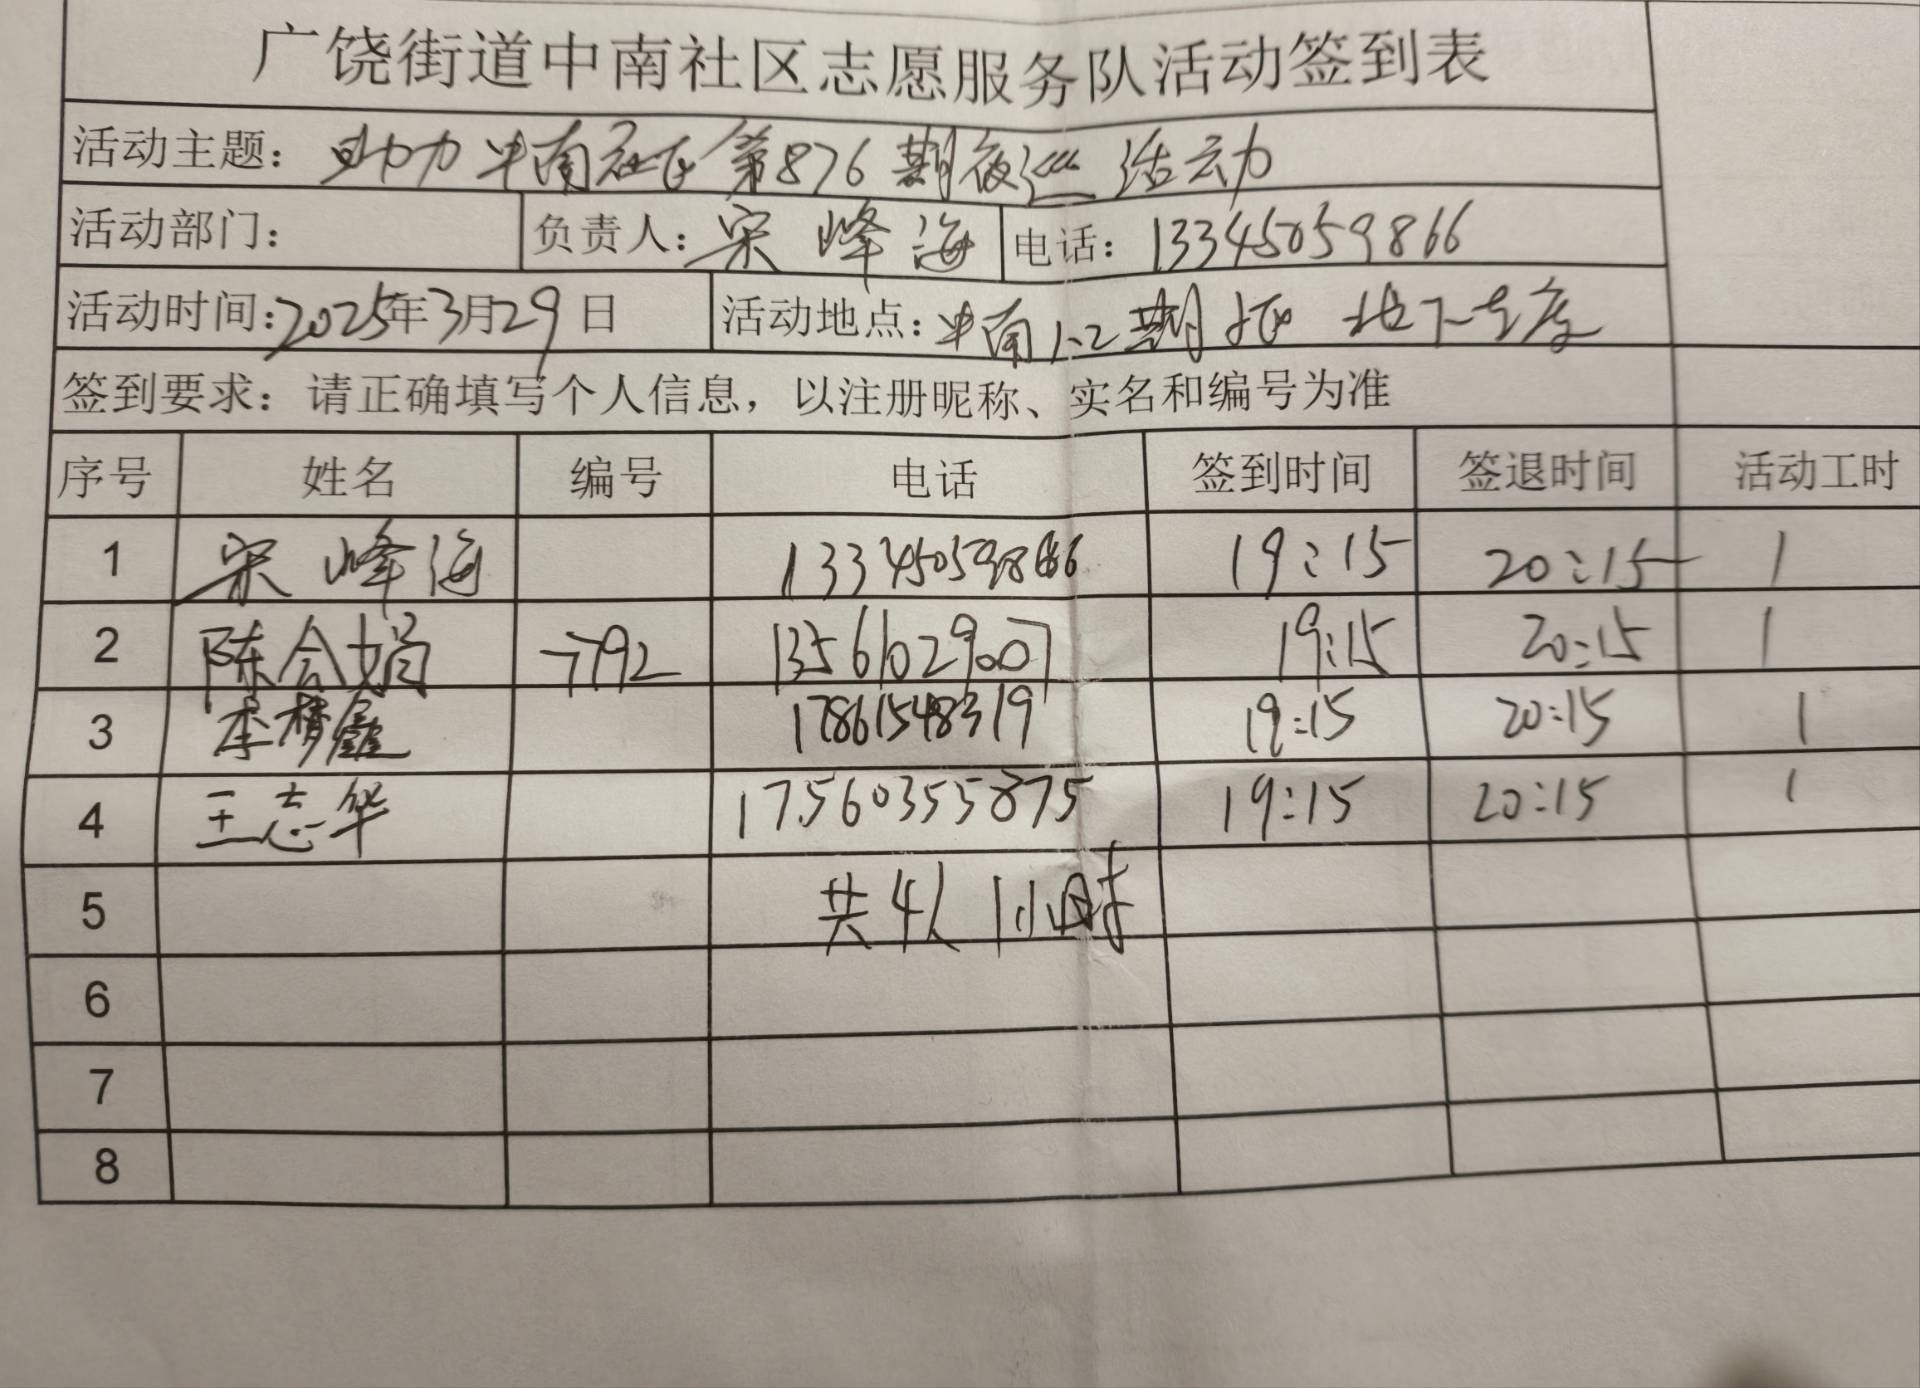 广饶街道中南社区志愿服务队活动签到表
活动主题：助力中南社区第876期夜巡活动
活动部门： 负责人：宋峰海 电话：13345059866
活动时间：2025年3月29日 活动地点：中南1-2期 地下车库
签到要求：请正确填写个人信息，以注册昵称、实名和编号为准
序号 姓名 编号 电话 签到时间 签退时间 活动工时
1 宋峰海 13345059866 19:15 20:15 1
2 陈会娟 7792 13561029007 19:15 20:15 1
3 李梦鑫 17861548319 19:15 20:15 1
4 王志华 17560355875 19:15 20:15 1
5 共4人 1小时
6
7
8